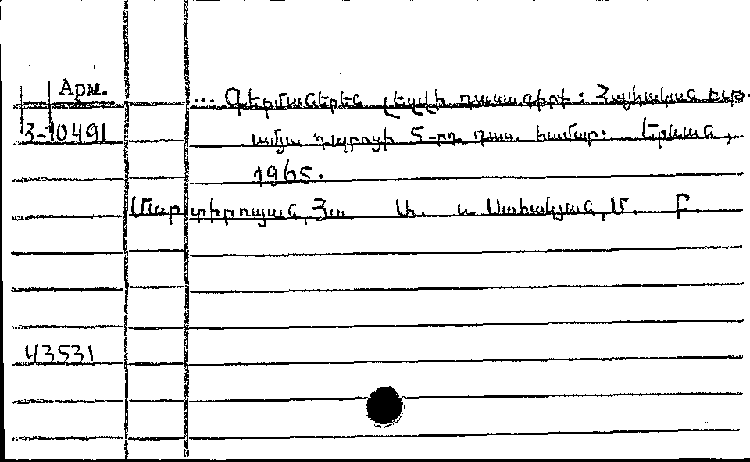 Арм.
... Գերմաներեն լեզվի դասագիրք: Հայկական ութ-
3-10491 ամյա դպրոցի 5-րդ դաս. համար: Երևան,
1965.
Մարտիրոսյան, Հ. Ա. և Սահակյան, Մ. Բ.
43531